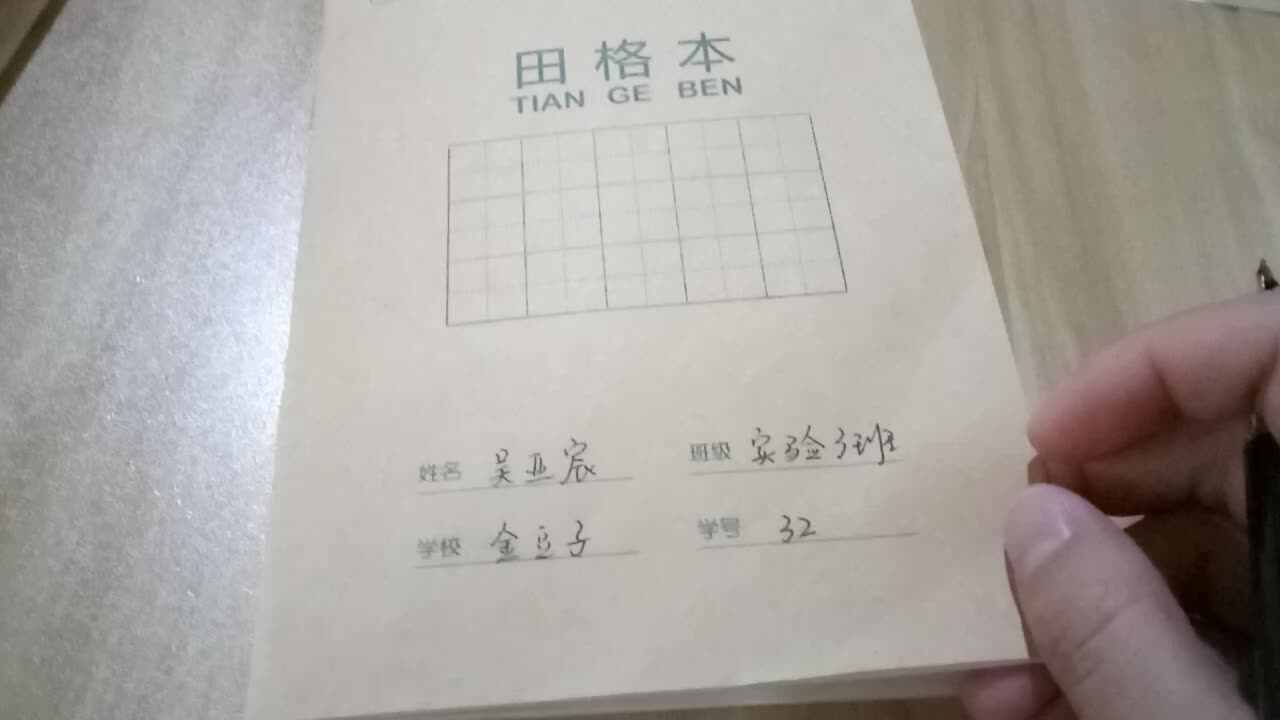 田格本
TIAN GE BEN
姓名 吴亚宸 班级 实验3班
学校 金豆子 学号 32